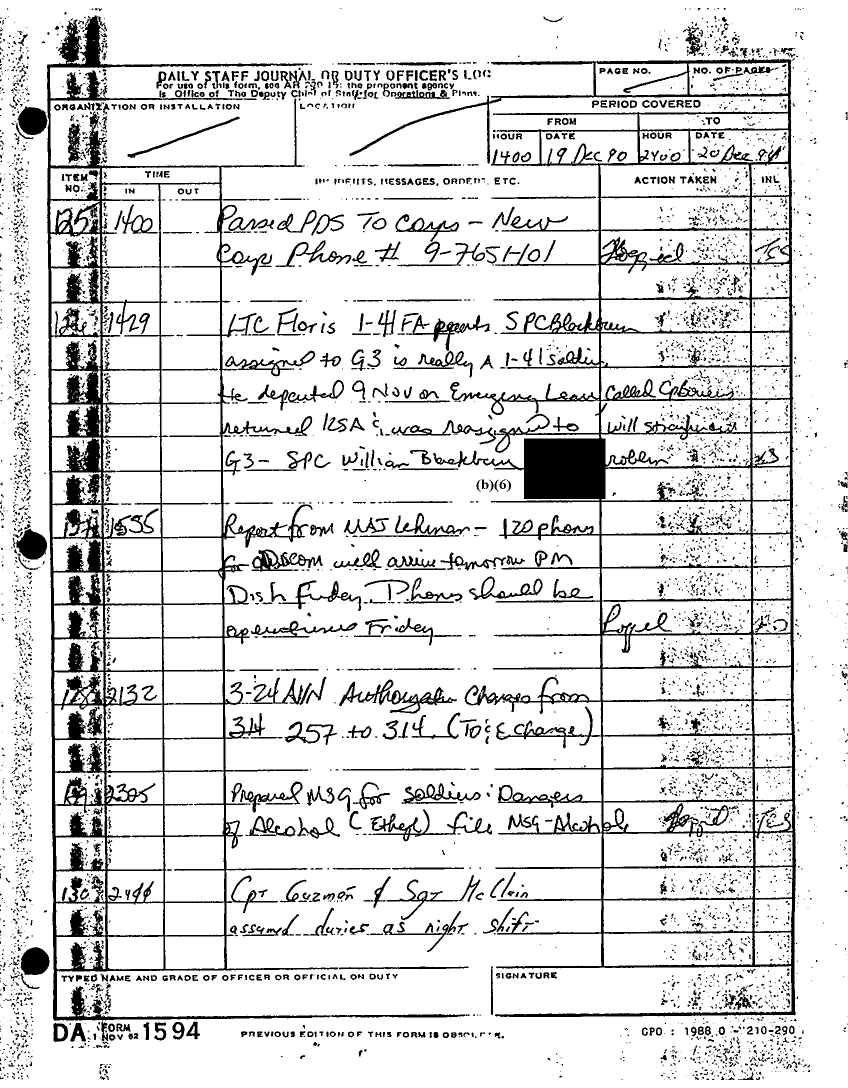 DAILY STAFF JOURNAL OR DUTY OFFICER'S LOG
For use of this form, see AR 220-15; the proponent agency
is Office of The Deputy Chief of Staff for Operations & Plans.
PAGE NO.
NO. OF PAGES
ORGANIZATION OR INSTALLATION
LOCATION
PERIOD COVERED
FROM
TO
HOUR
DATE
HOUR
DATE
1400
19 Dec 90
2400
20 Dec 90
ITEM NO.
TIME
IN
OUT
INCIDENTS, MESSAGES, ORDERS, ETC.
ACTION TAKEN
INL
125 1400 Passed PDS To Corps - New
Corps Phone # 9-7651-101
1429 LTC Floris 1-41 FA reports SPC Blackburn
assigned to G3 is really A 1-41 soldier
He departed 9 Nov on Emergency Leave Called
returned & was reassigned to will straighten
G3 - SPC William Blackburn problem
(b)(6)
1535 Report from MAJ Lehman - 120 phones
for will arrive tomorrow PM
Dish Friday. Phones should be
operational Friday
128 2132 3-24 AVN Authorization Changes from
314 257 to 314. (TO&E Change)
129 2305 Prepared MSG for Soldiers: Dangers
of Alcohol (Ethyl) file MSG-Alcohol TCS
130 2400 Cpt Guzman & Sgt McClain
assumed duties as night shift
TYPED NAME AND GRADE OF OFFICER OR OFFICIAL ON DUTY
SIGNATURE
DA FORM 1594
1 NOV 62
PREVIOUS EDITION OF THIS FORM IS OBSOLETE.
GPO : 1988 O - 210-290